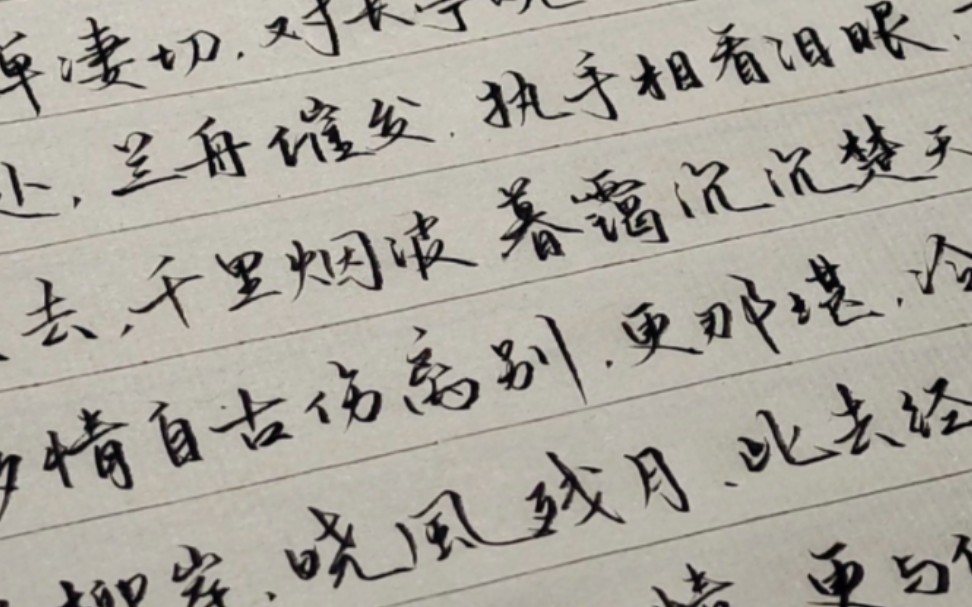 蝉凄切，对长亭晚
处，兰舟催发．执手相看泪眼，
去，千里烟波 暮霭沉沉楚天
多情自古伤离别．更那堪，冷
柳岸．晓風残月、此去经
情 更与